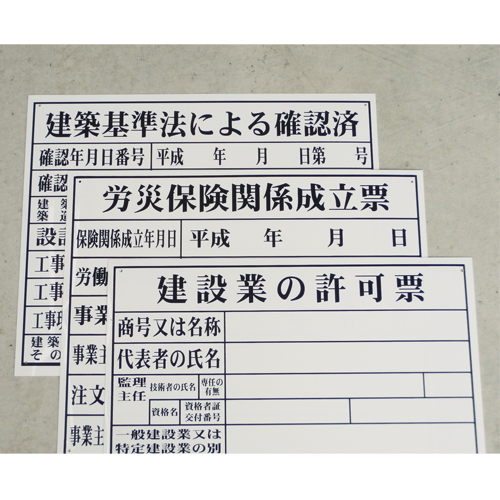 建築基準法による確認済
確認年月日番号 平成 年 月 日第 号
確認
建築
築 造
設計
工事
工事
工事現
建築
その
労災保険関係成立票
保険関係成立年月日 平成 年 月 日
労働
事業
事業主
注文
事業主
建設業の許可票
商号又は名称
代表者の氏名
監理 主任 技術者の氏名 専任の有無
資格名 資格者証交付番号
一般建設業又は
特定建設業の別